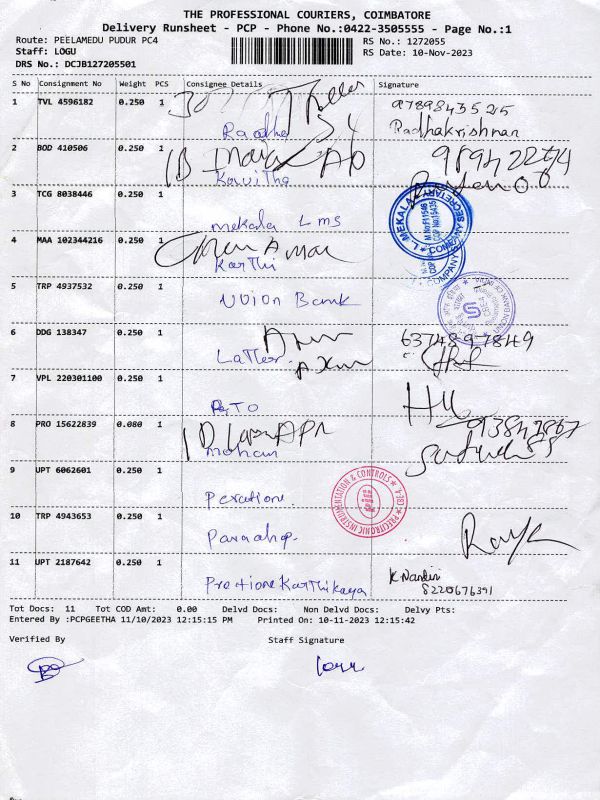 THE PROFESSIONAL COURIERS, COIMBATORE
Delivery Runsheet - PCP - Phone No.:0422-3505555 - Page No.:1
Route: PEELAMEDU PUDUR PC4
RS No.: 1272055
Staff: LOGU
RS Date: 10-Nov-2023
DRS No.: DCJB127205501
S No Consignment No Weight PCS Consignee Details Signature
1 TVL 4596182 0.250 1 9789843525
Radha Radhakrishnan
2 BOD 410506 0.250 1
Kavitha
3 TCG 8038446 0.250 1
Mekala Lms
L MEKALA
COMPANY SECRETARY
4 MAA 102344216 0.250 1
Karthi
5 TRP 4937532 0.250 1
Union Bank
6 DDG 138347 0.250 1 6374897849
7 VPL 220301100 0.250 1
8 PRO 15622839 0.080 1
Mohan
9 UPT 6062601 0.250 1
PRECITRONIC INSTRUMENTATION & CONTROLS
CBE-4
10 TRP 4943653 0.250 1
11 UPT 2187642 0.250 1 K Nandini
8220676391
Tot Docs: 11 Tot COD Amt: 0.00 Delvd Docs: Non Delvd Docs: Delvy Pts:
Entered By :PCPGEETHA 11/10/2023 12:15:15 PM Printed On: 10-11-2023 12:15:42
Verified By Staff Signature